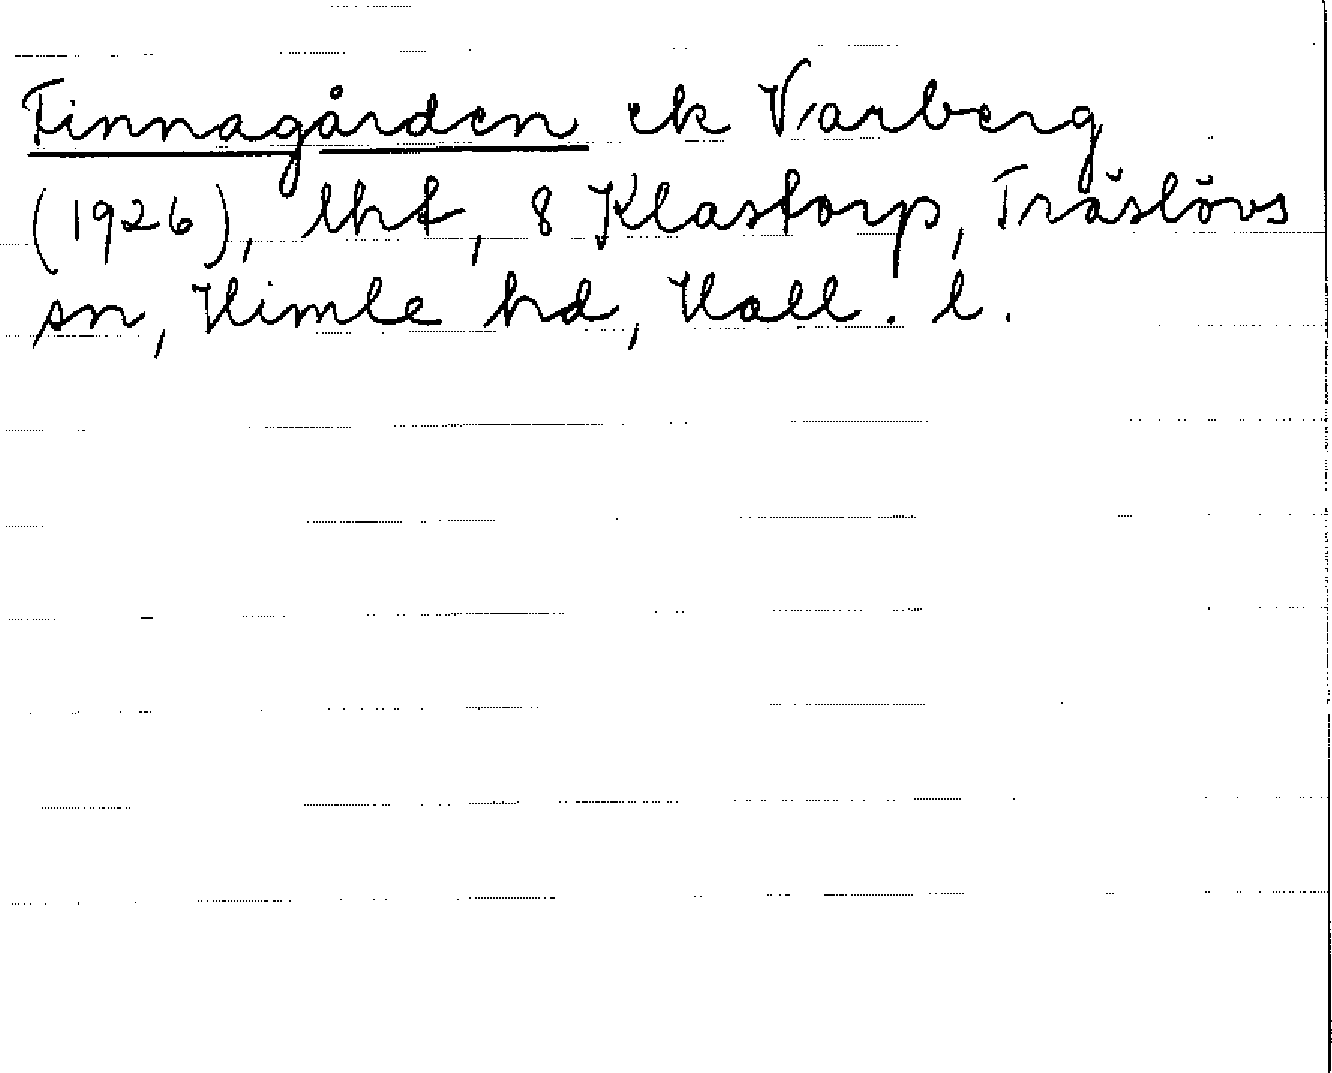 Finnagården ek Varberg
(1926), lht, 8 Klastorp, Träslövs
sn, Himle hd, Hall. l.